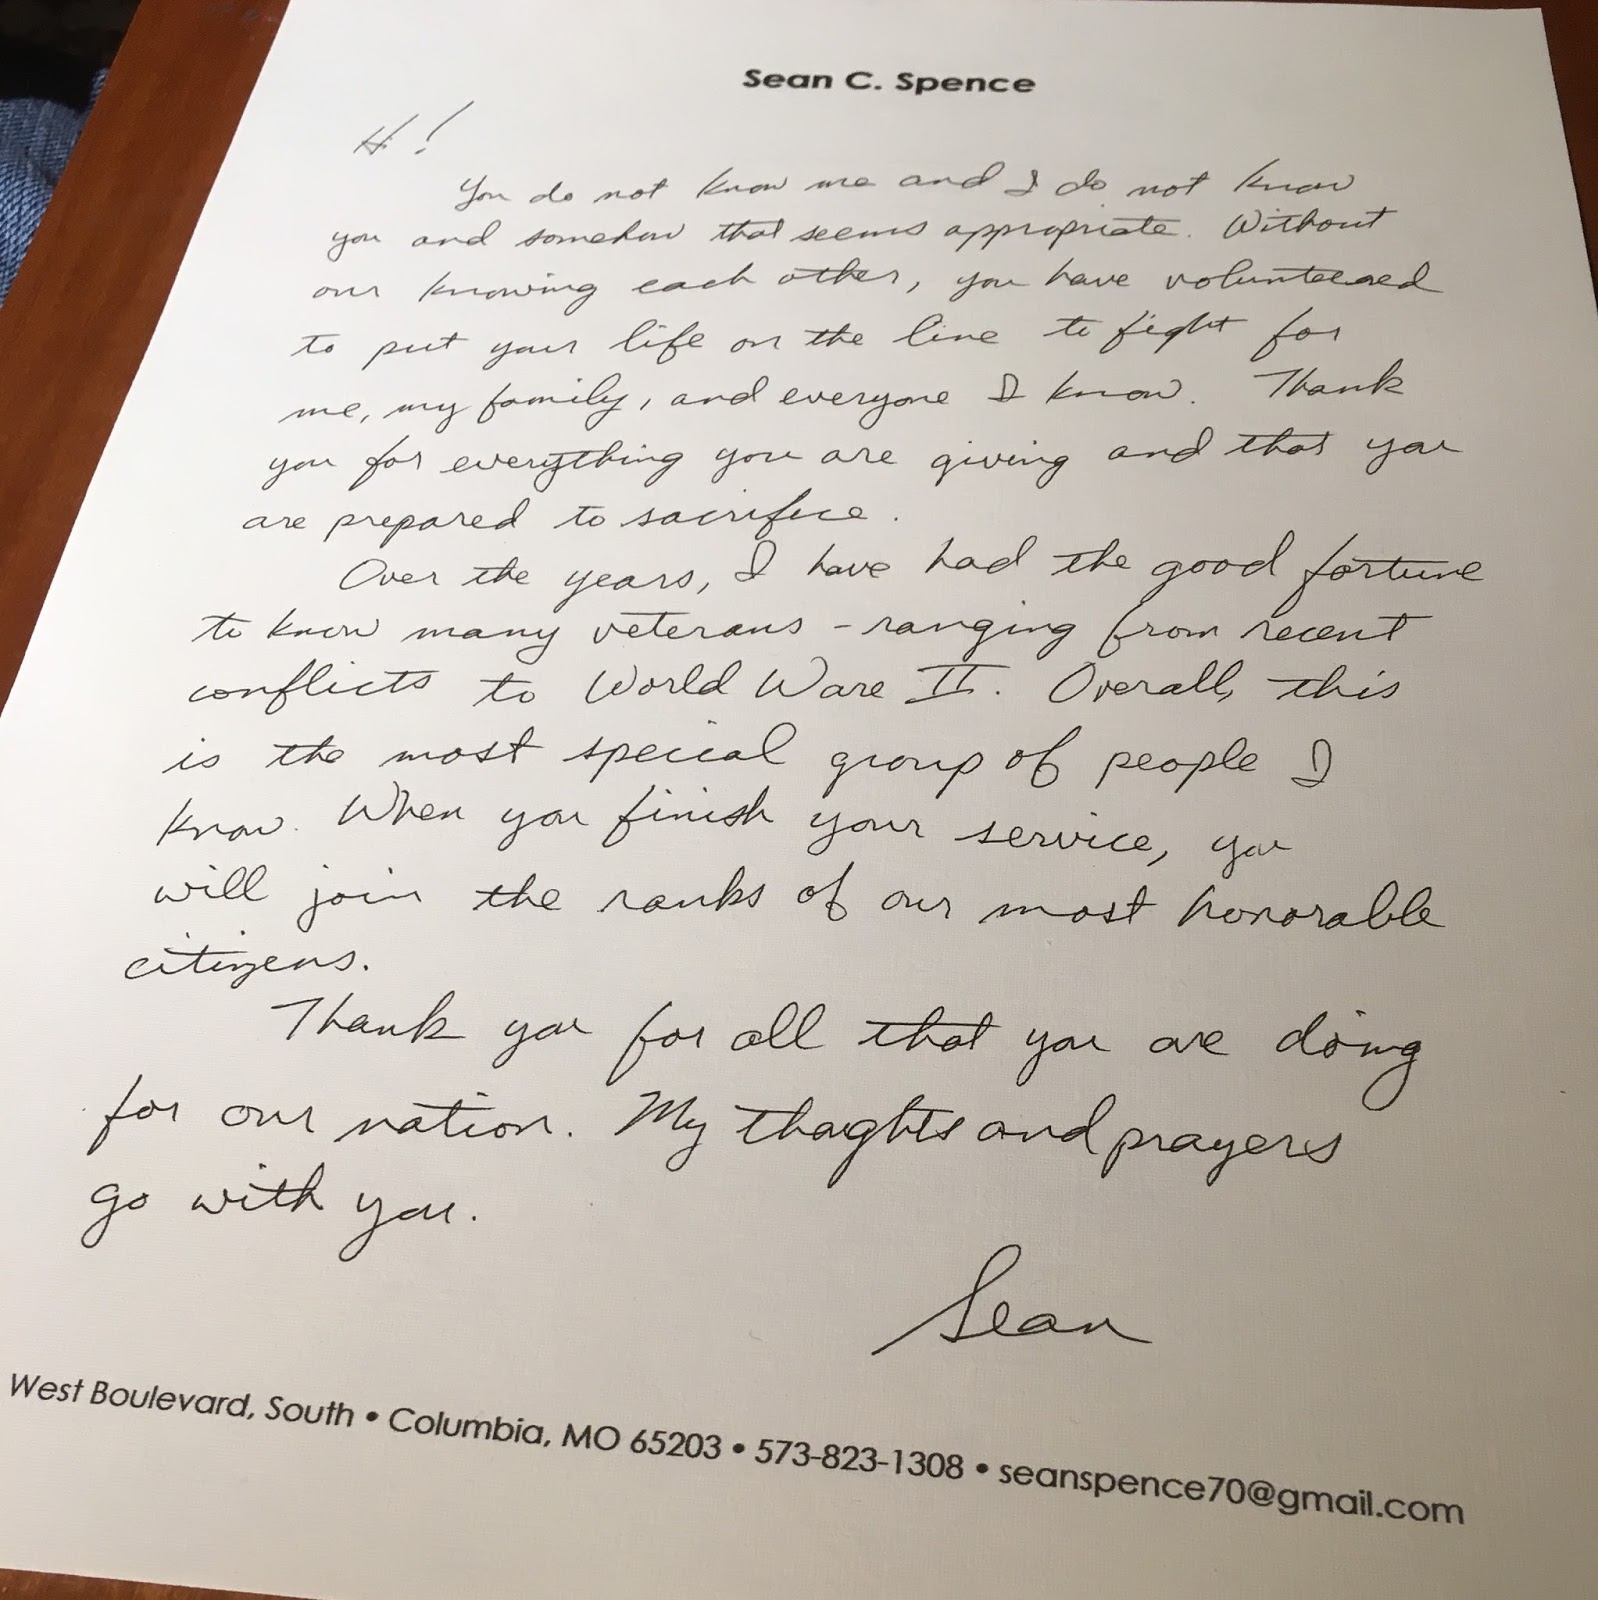 Sean C. Spence
Hi!
You do not know me and I do not know
you and somehow that seems appropriate. Without
our knowing each other, you have volunteered
to put your life on the line to fight for
me, my family, and everyone I know. Thank
you for everything you are giving and that you
are prepared to sacrifice.
Over the years, I have had the good fortune
to know many veterans - ranging from recent
conflicts to World Ware II. Overall, this
is the most special group of people I
know. When you finish your service, you
will join the ranks of our most honorable
citizens.
Thank you for all that you are doing
for our nation. My thoughts and prayers
go with you.
Sean
West Boulevard, South • Columbia, MO 65203 • 573-823-1308 • seanspence70@gmail.com